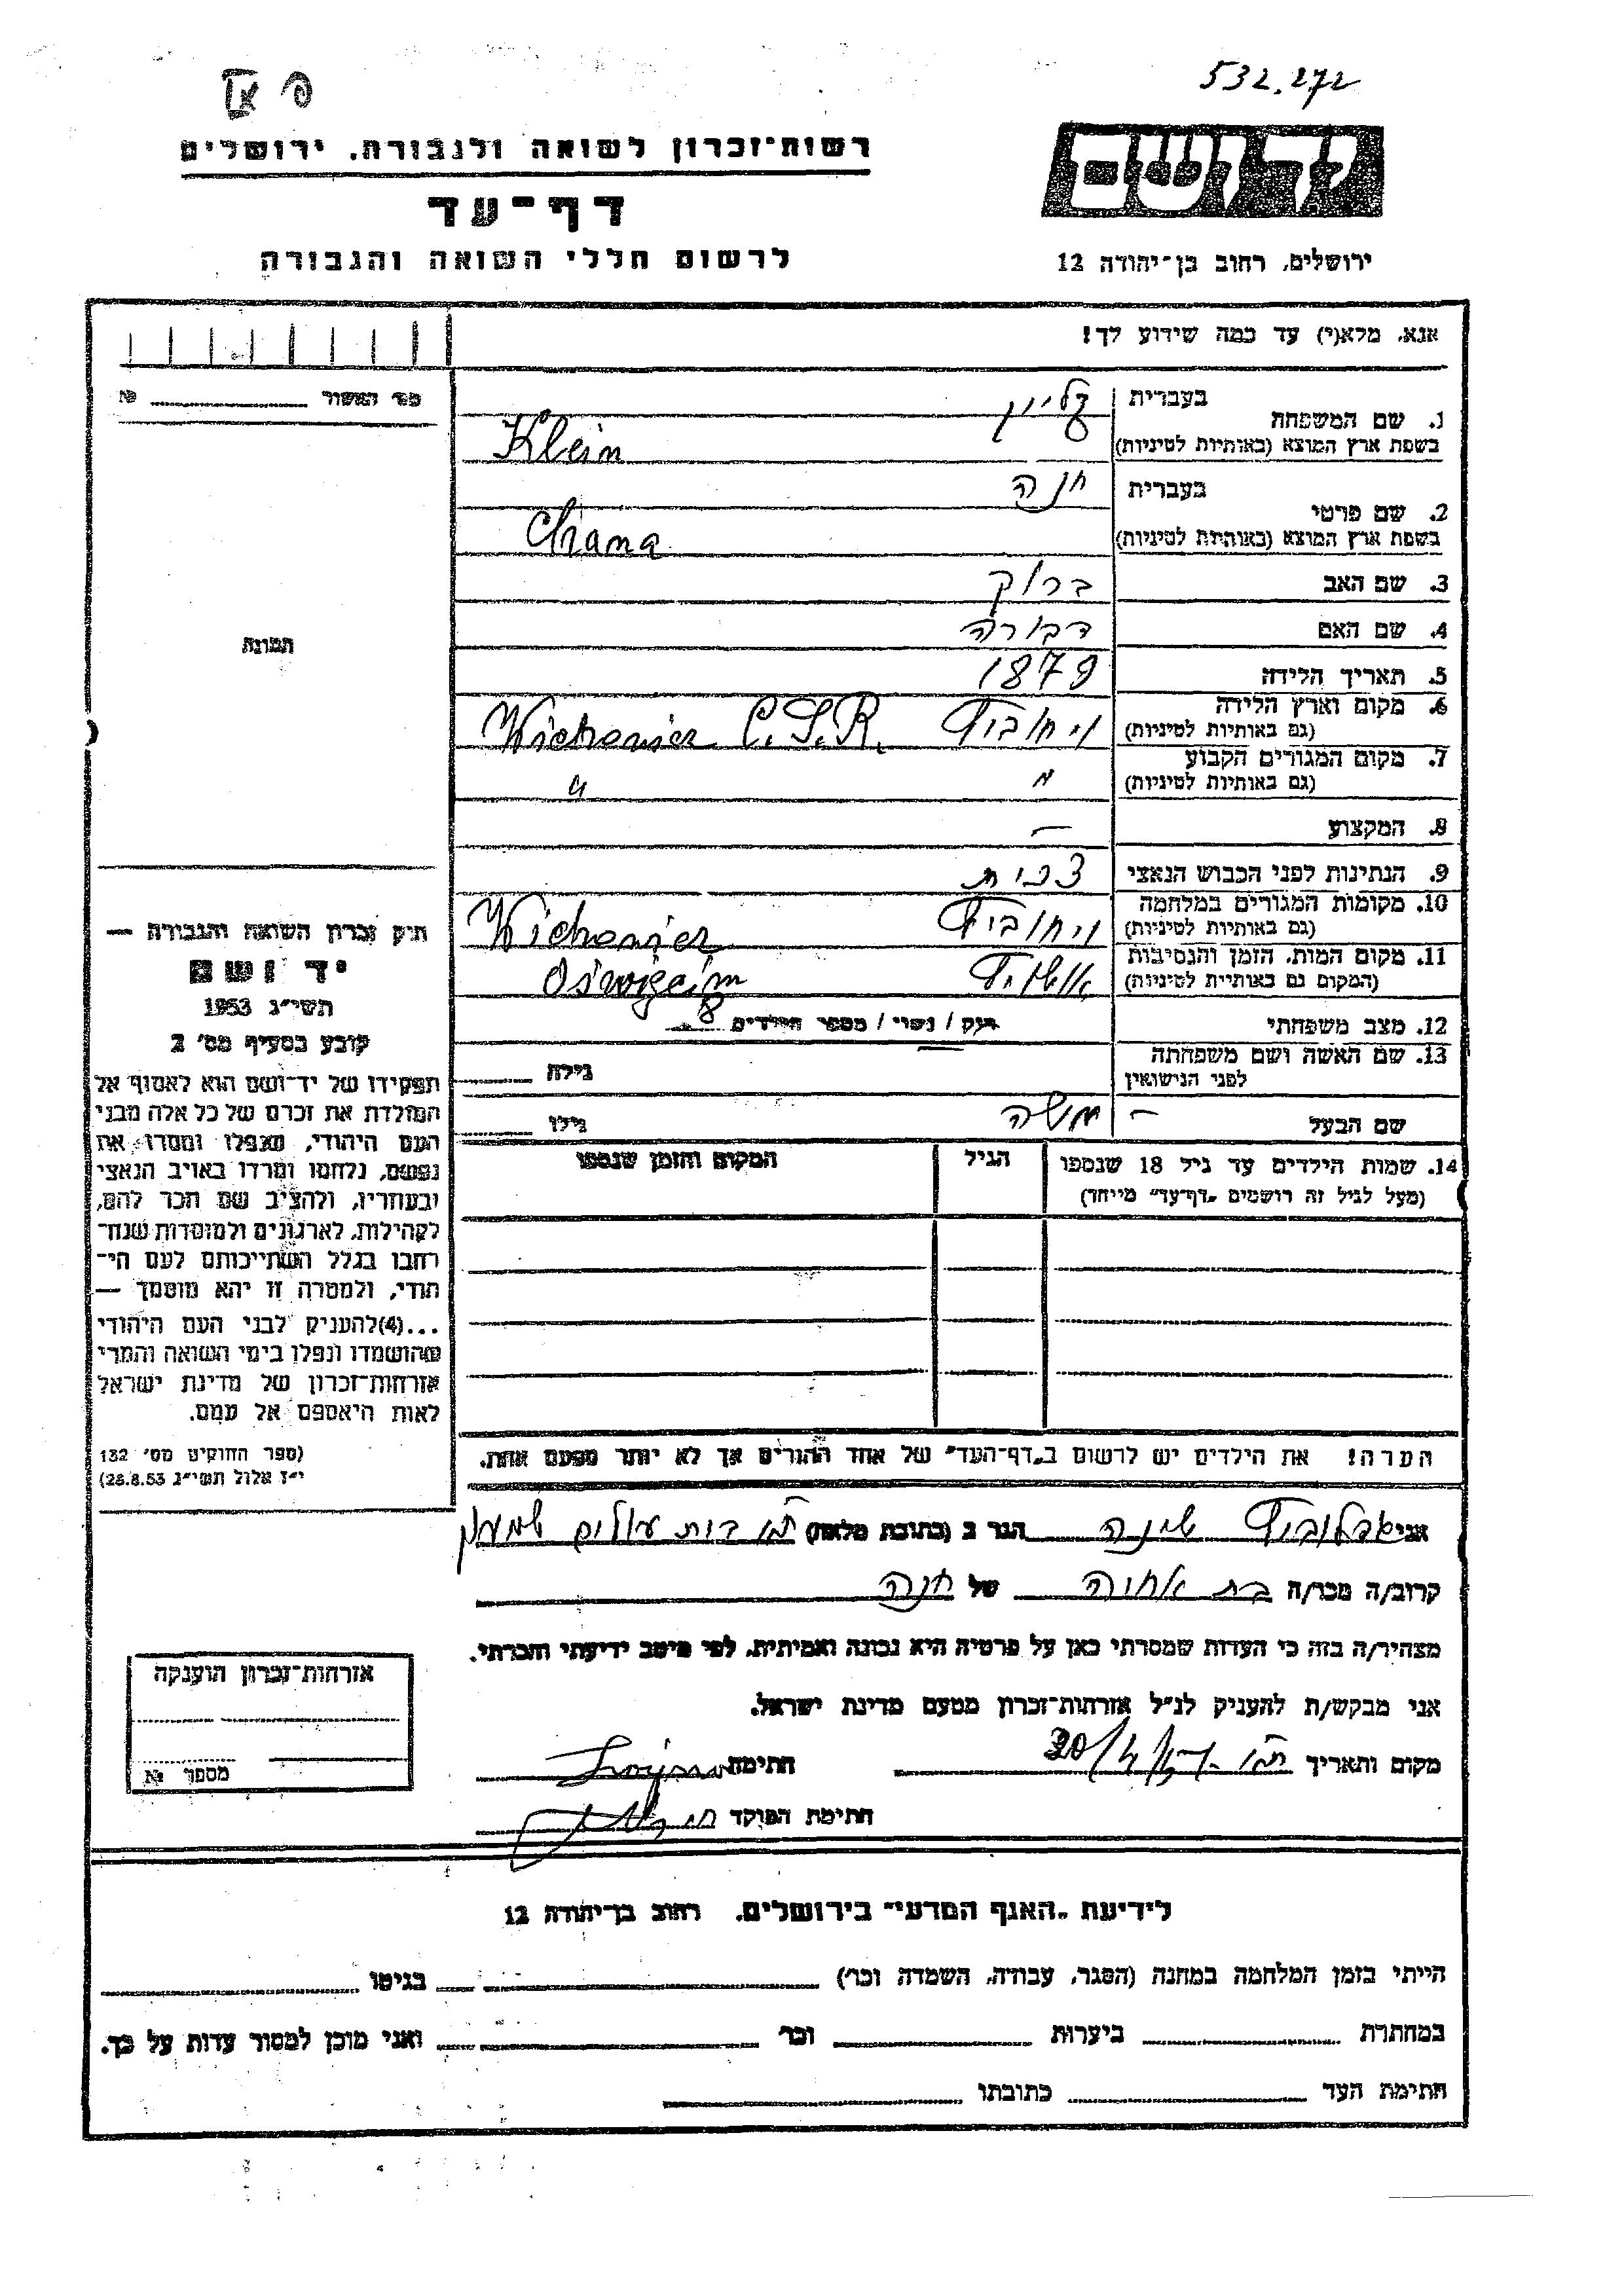 532.272
רשות־זכרון לשואה ולגבורה, ירושלים
דף־עד
לרשום חללי השואה והגבורה
יד ושם
ירושלים, רחוב בן־יהודה 12
אנא, מלא(י) עד כמה שידוע לך!
מס׳ האשור № 
1. שם המשפחה
בעברית קליין
בשפת ארץ המוצא (באותיות לטיניות) Klein
2. שם פרטי
בעברית חנה
בשפת ארץ המוצא (באותיות לטיניות) Chana
3. שם האב ברוך
4. שם האם דבורה
5. תאריך הלידה 1879
6. מקום וארץ הלידה
(גם באותיות לטיניות) C.S.R.
7. מקום המגורים הקבוע
(גם באותיות לטיניות) " "
8. המקצוע —
9. הנתינות לפני הכבוש הנאצי צכית
10. מקומות המגורים במלחמה
(גם באותיות לטיניות)
11. מקום המות, הזמן והנסיבות
(המקום גם באותיות לטיניות)
12. מצב משפחתי רווק / נשוי / מספר הילדים 8
13. שם האשה ושם משפחתה
לפני הנישואין — גילה
שם הבעל — משה גילו
14. שמות הילדים עד גיל 18 שנספו
(מעל לגיל זה רושמים „דף־עד" מייחד)
הגיל
המקום והזמן שנספו
הערה! את הילדים יש לרשום ב„דף־העד" של אחד ההורים אך לא יותר מפעם אחת.
תמונה
תיק זכרון השואה והגבורה —
יד ושם
תשי״ג 1953
קובע בסעיף מס׳ 2
תפקידו של יד־ושם הוא לאסוף אל
המולדת את זכרם של כל אלה מבני
העם היהודי, שנפלו ומסרו את
נפשם, נלחמו ומרדו באויב הנאצי
ובעוזריו, ולהציב שם וזכר להם,
לקהילות, לארגונים ולמוסדות שנח־
רבו בגלל השתייכותם לעם הי־
הודי, ולמטרה זו יהא מוסמך —
...(4)להעניק לבני העם היהודי
שהושמדו ונפלו בימי השואה והמרי
אזרחות־זכרון של מדינת ישראל
לאות היאספם אל עמם.
(ספר החוקים מס׳ 132
י״ז אלול תשי״ג 28.8.53)
אני שינה הגר ב (כתובת מלאה)
קרוב/ה מכר/ה בת אחיה של חנה
מצהיר/ה בזה כי העדות שמסרתי כאן על פרטיה היא נכונה ואמיתית, לפי מיטב ידיעתי והכרתי.
אני מבקש/ת להעניק לנ״ל אזרחות־זכרון מטעם מדינת ישראל.
מקום ותאריך חתימה
חתימת הפוקד
אזרחות־זכרון הוענקה
מספר №
לידיעת „האגף המדעי" בירושלים, רחוב בן־יהודה 12
הייתי בזמן המלחמה במחנה (הסגר, עבודה, השמדה וכו׳) בגיטו
במחתרת ביערות וכו׳ ואני מוכן למסור עדות על כך.
חתימת העד כתובתו